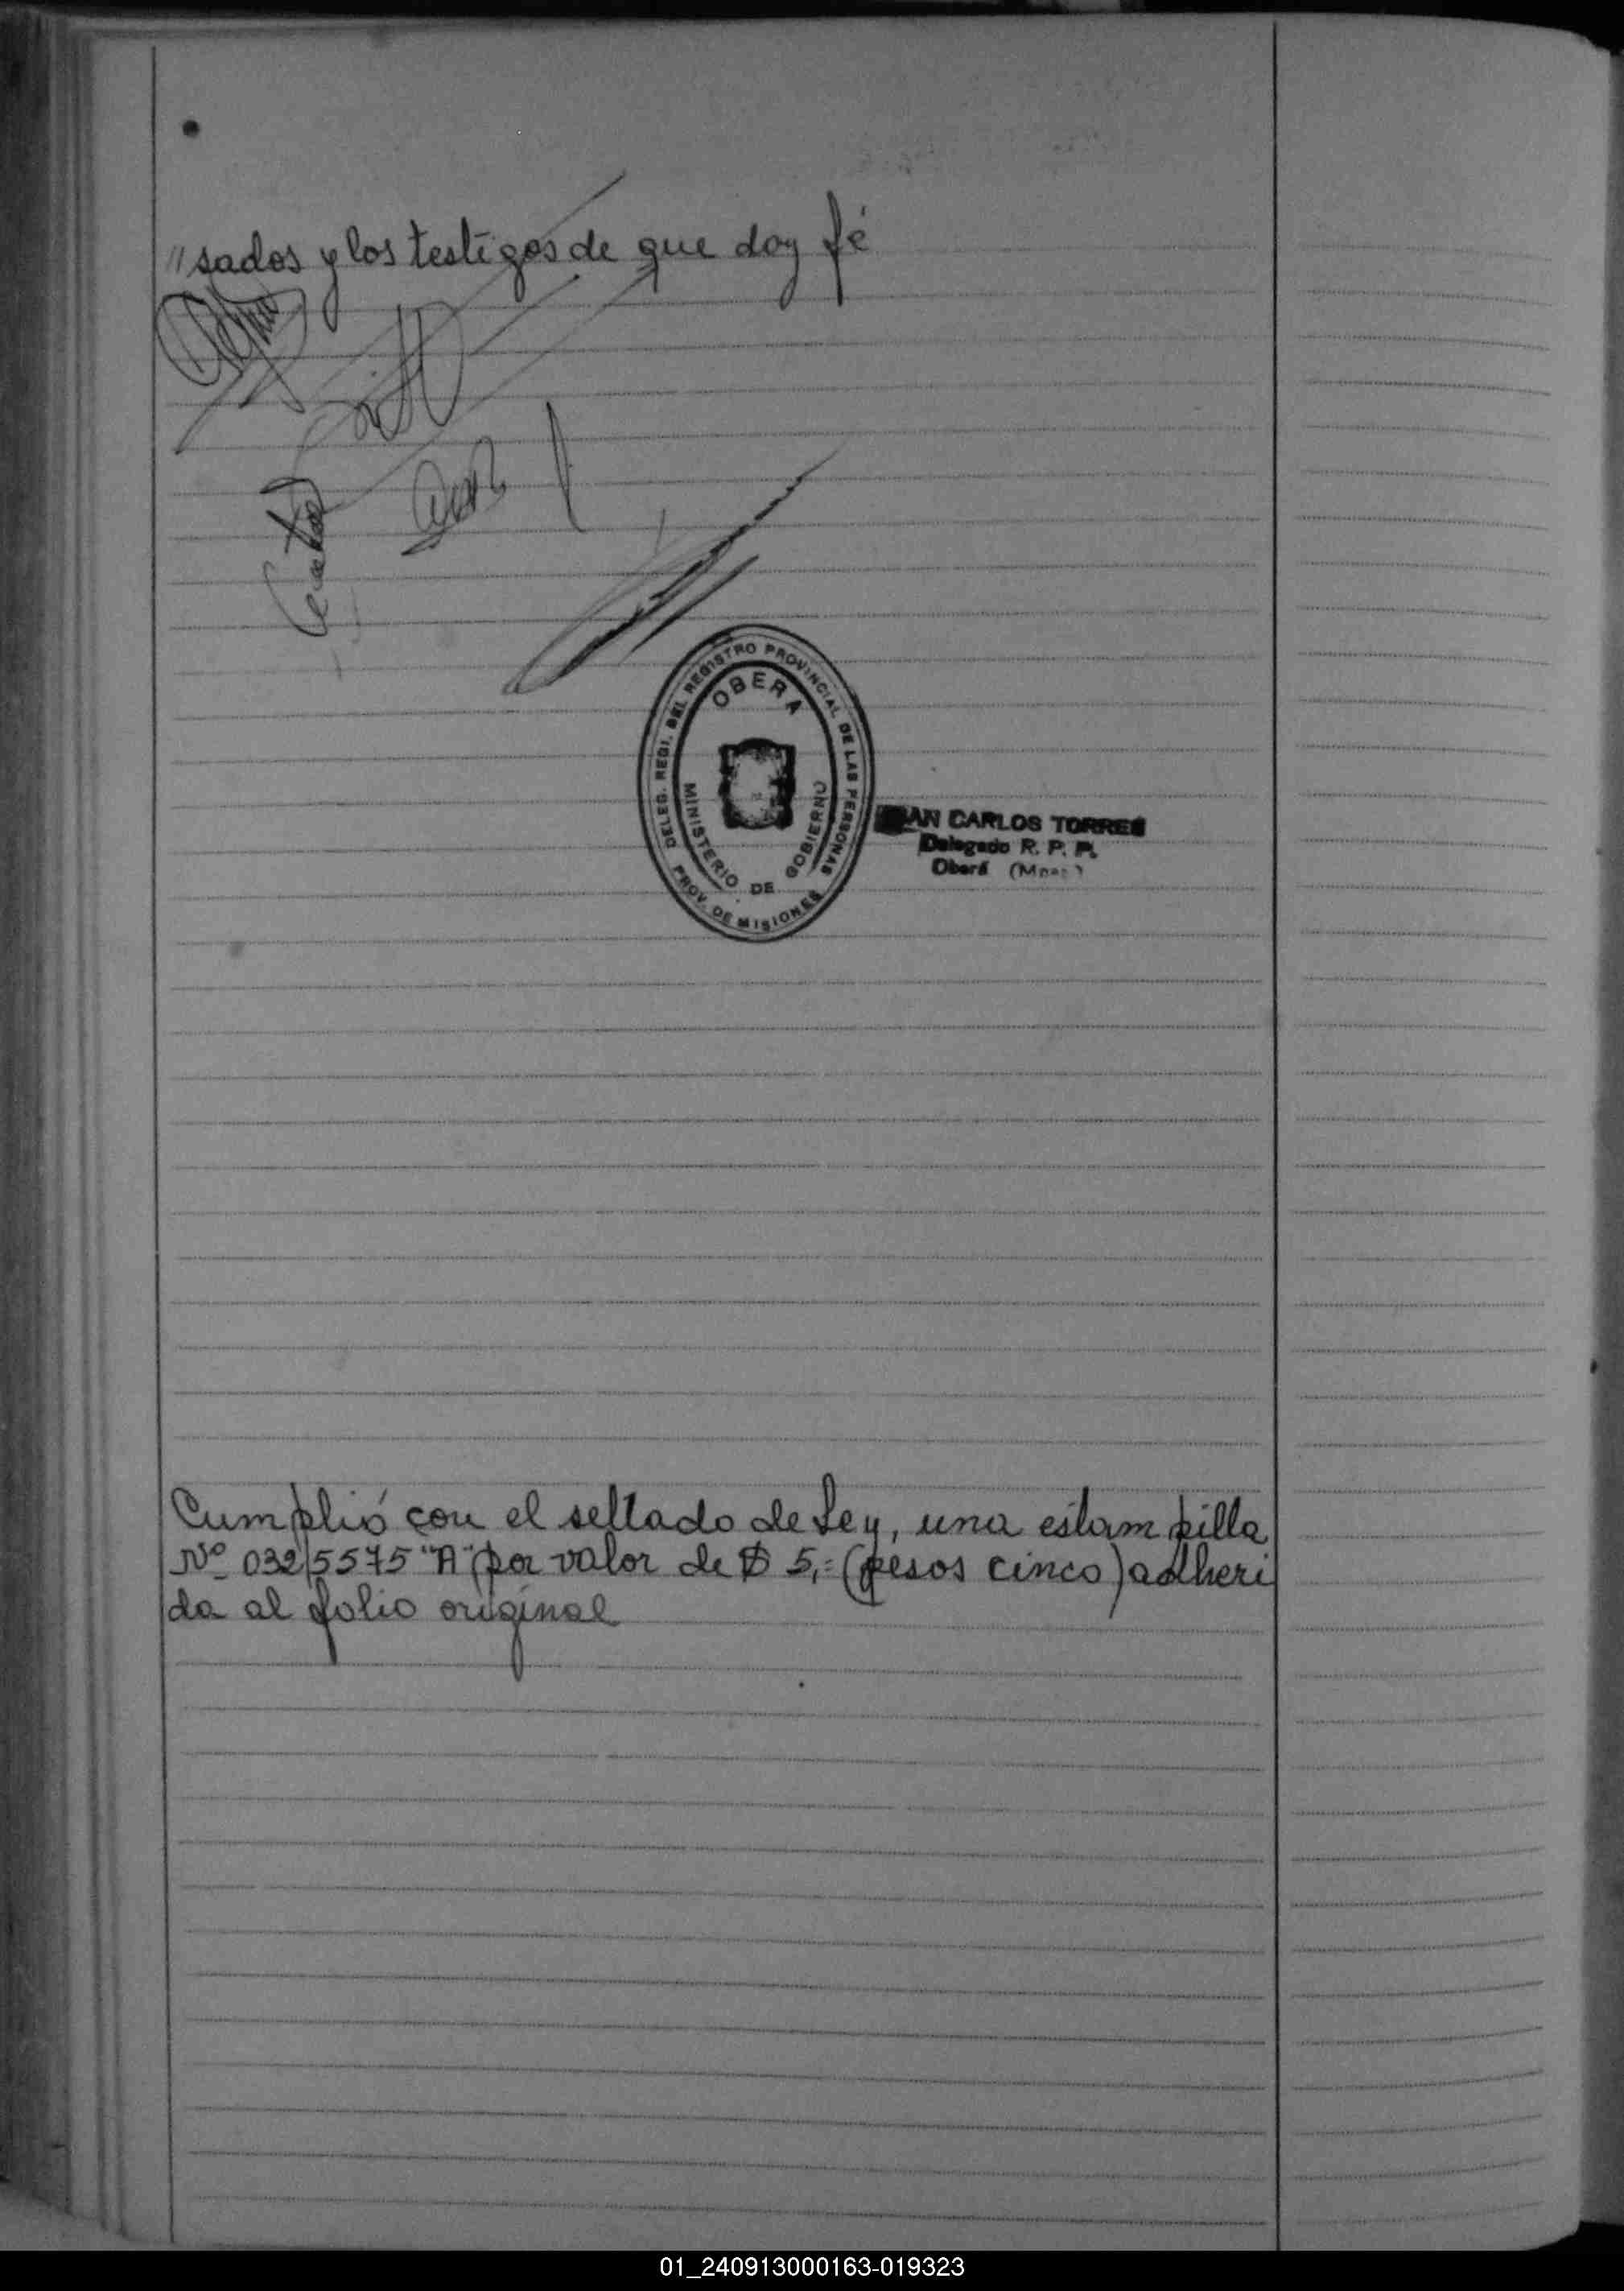 "sados y los testigos de que doy fé
DELEG. REGI. DEL REGISTRO PROVINCIAL DE LAS PERSONAS
OBERA
MINISTERIO DE GOBIERNO
PROV. DE MISIONES
CARLOS TORRES
Delegado R. P. P.
Oberá (Mnes)
Cumplió con el sellado de Ley, una estampilla
Nº 0325575 "A" por valor de $ 5,= (pesos cinco) adheri
da al folio original
01_240913000163-019323